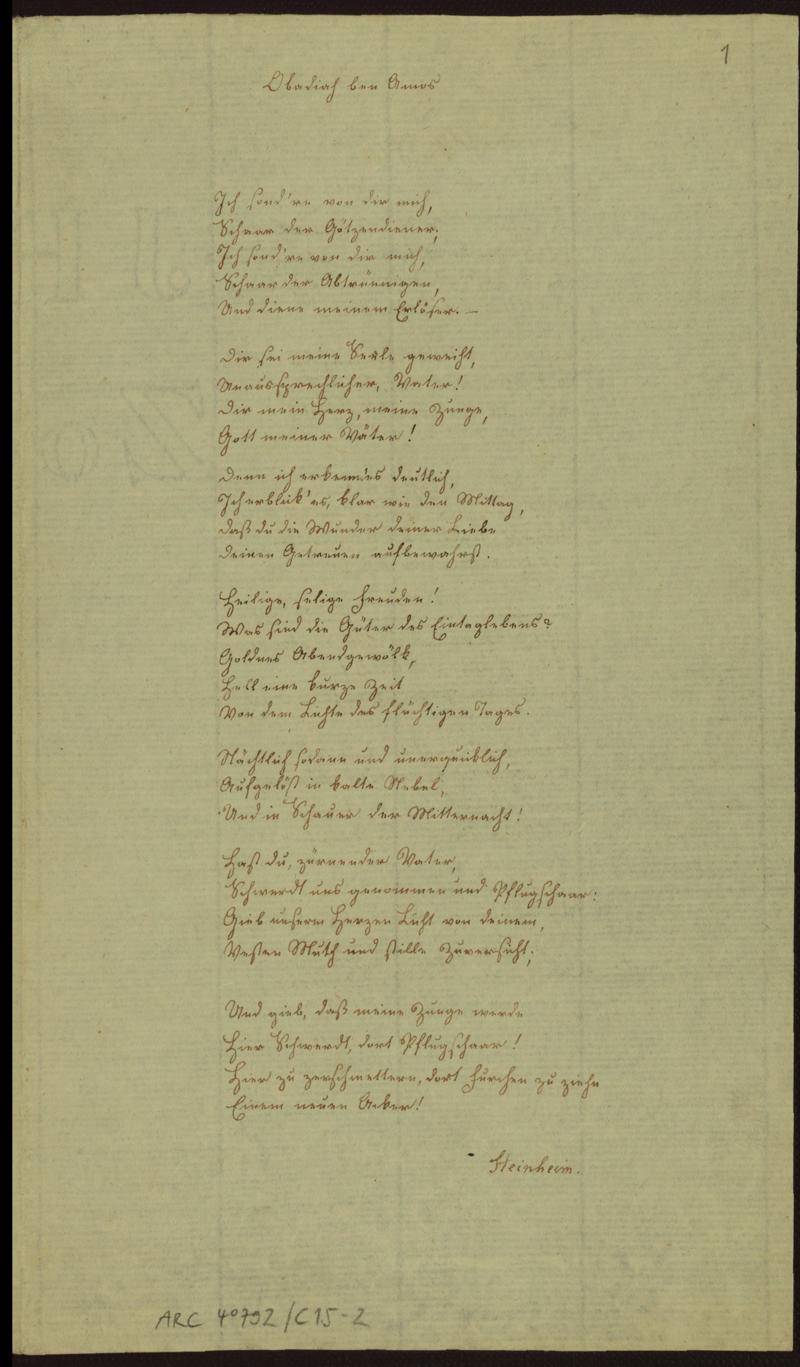 1
Obadiah ben Amos
Ich sond're von dir mich,
Schaar der Götzendiener;
Ich sond're von dir mich,
Schaar der Abtrünnigen,
Und diene meinem Erlöser. —
Dir sei meine Seele geweiht,
Unaussprechlicher, Vater!
Dir mein Herz, meine Zunge,
Gott meiner Väter!
Denn ich erkenn'es deutlich,
Ich erblick' es, klar wie den Mittag,
Daß du die Wunder deiner Liebe
Deinen Getreuen aufbewahrst.
Heilige, selige Freuden!
Was sind die Güter des Eintaglebens?
Goldnes Abendgewölk,
Hell eine kurze Zeit
Von dem Lichte des flüchtigen Tages.
Nächtlich sodann und unerquicklich,
Aufgelöst in kalte Nebel,
Und in Schauer der Mitternacht!
Hast du, zürnender Vater,
Schwerdt uns genommen und Pflugschaar:
Gieb unserm Herzen Licht von deinem,
Vesten Muth und stille Zuversicht;
Und gieb, daß meine Zunge werde
Hier Schwerdt, dort Pflugschaar!
Hier zu zerschmettern, dort Furchen zu ziehn
Einem neuen Acker!
Steinheim.
ARC 4°792/C15-2